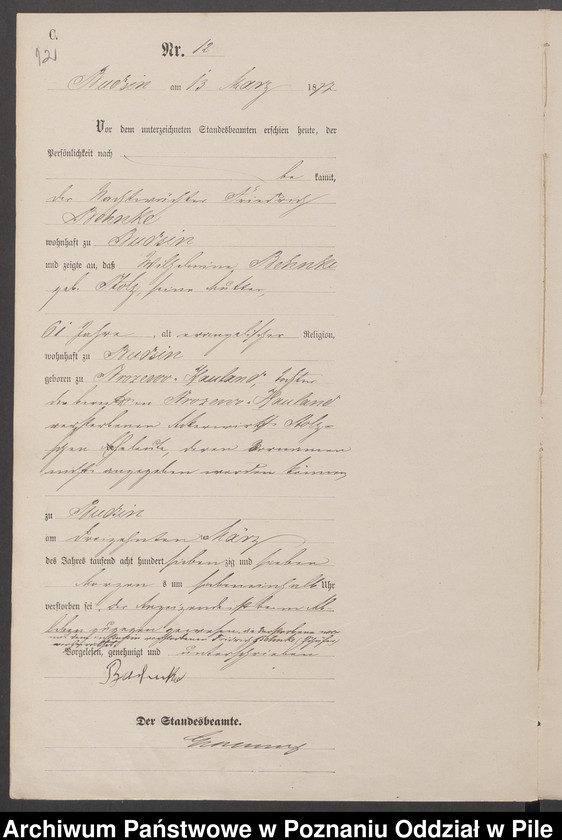 C.
121
Nr. 12
Rudsin am 13 März 1877
Vor dem unterzeichneten Standesbeamten erschien heute, der
Persönlichkeit nach
be kannt,
der Nachtwächter Friedrich
Behnke
wohnhaft zu Rudsin
und zeigte an, daß Wilhelmine Behnke
geb. Stolz, seine Mutter,
61 Jahre, alt evangelischer Religion,
wohnhaft zu Rudsin
geboren zu Brozewo-Hauland, Tochter
der bereits in Brozewo-Hauland
verstorbenen Ackerwirth Stolz-
schen Eheleute, deren Vornamen
nicht angegeben werden können,
zu Rudsin
am dreizehnten März
des Jahres tausend acht hundert sieben zig und sieben
Morgens um siebeneinhalb Uhr
verstorben sei. Der Anzeigende ist beim Ab-
leben zugegen gewesen. die Verstorbene war
mit dem verstorbenen Friedrich Behnke,
verheirathet
Vorgelesen, genehmigt und unterschrieben
Behnke
Der Standesbeamte.
Archiwum Państwowe w Poznaniu Oddział w Pile